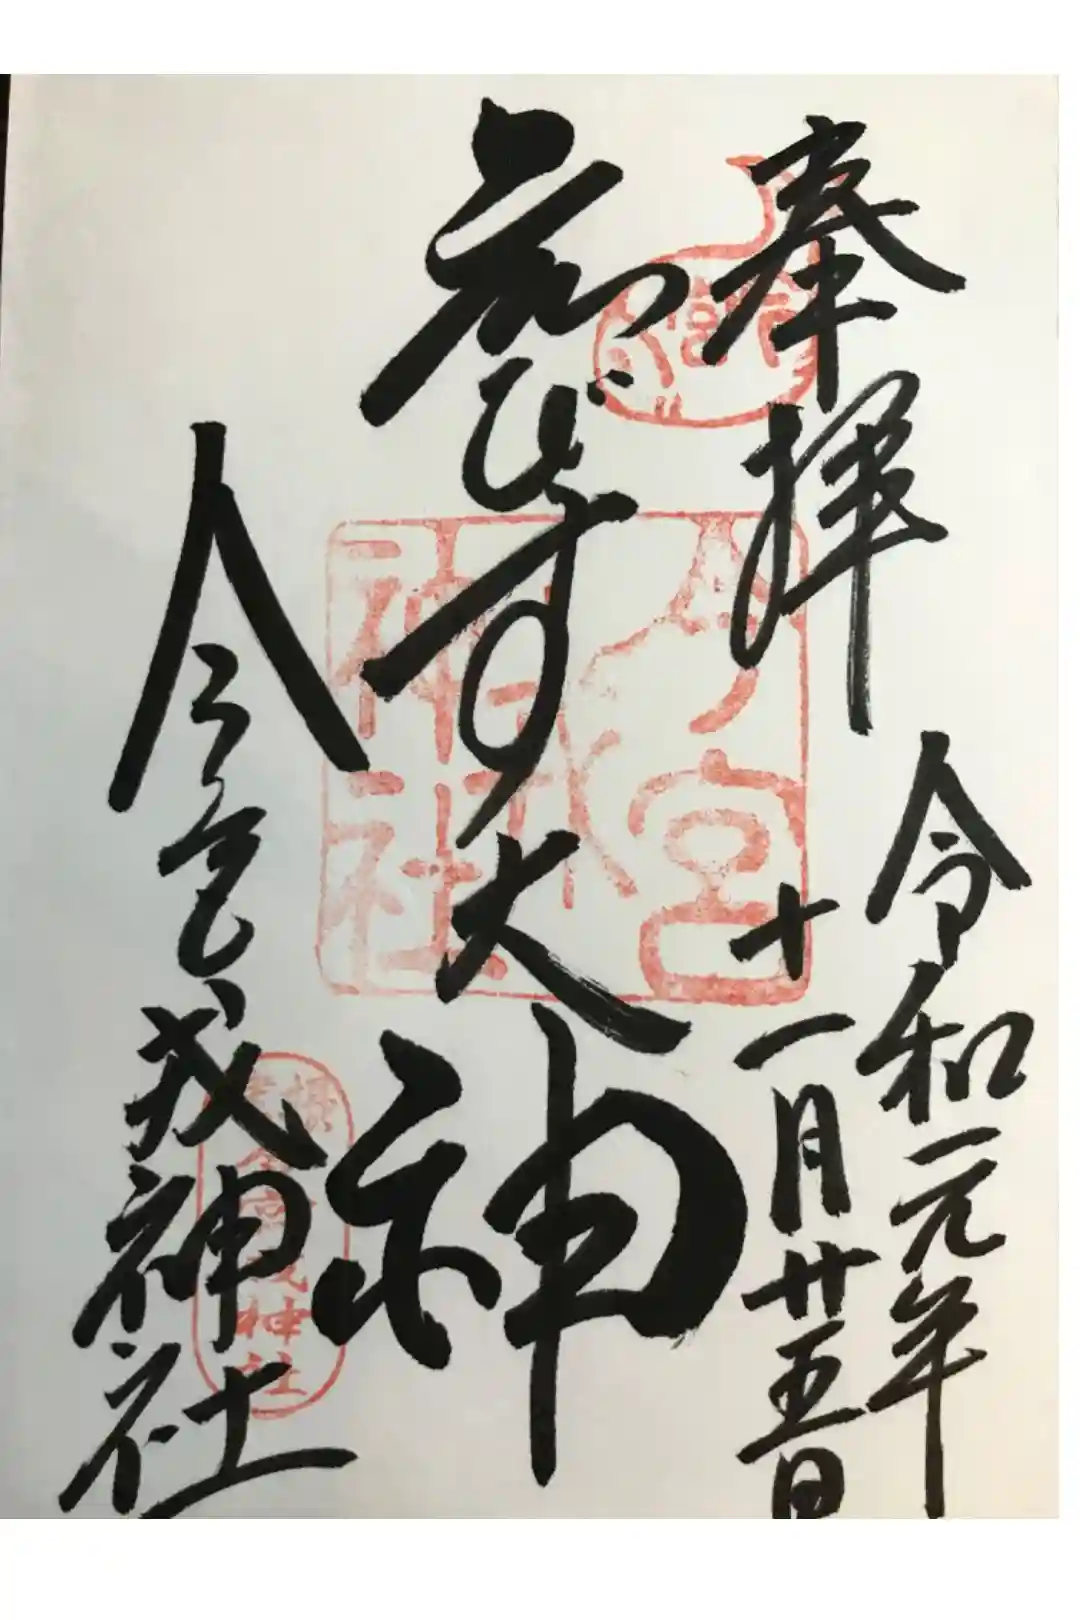 奉拝
令和元年
十一月廿五日
ゑびす大神
今宮戎神社
今宮
戎
神社
今宮戎神社